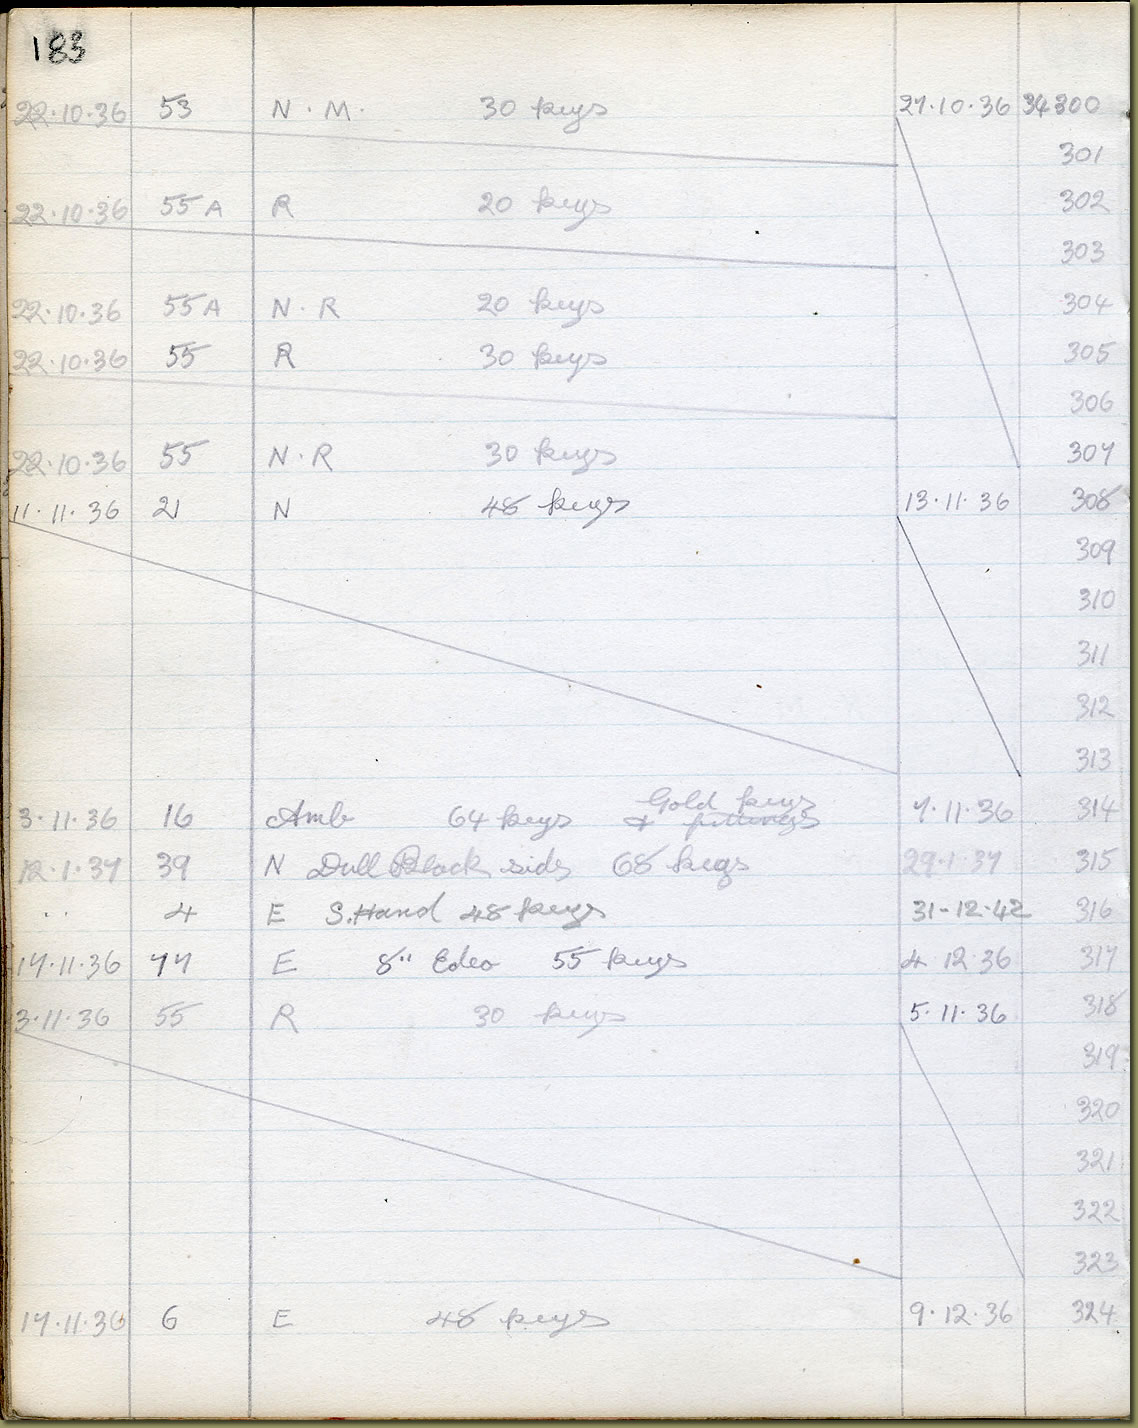 183
22.10.36 53 N.M. 30 keys 27.10.36 34300
301
22.10.36 55A R 20 keys 302
303
22.10.36 55A N.R 20 keys 304
22.10.36 55 R 30 keys 305
306
22.10.36 55 N.R 30 keys 307
11.11.36 21 N 48 keys 13.11.36 308
309
310
311
312
313
Gold keys
3.11.36 16 Amb 64 keys & fittings 7.11.36 314
12.1.37 39 N Dull Black sides 68 keys 29.1.37 315
.. 4 E S.Hand 48 keys 31-12-42 316
17.11.36 77 E 8" Edeo 55 keys 4.12.36 317
3.11.36 55 R 30 keys 5.11.36 318
319
320
321
322
323
17.11.36 6 E 48 keys 9.12.36 324